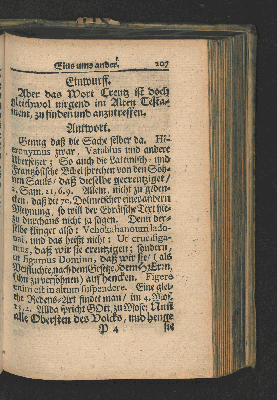 Eins ums ander. 207
Einwurff.
Aber das Wort Creutz ist doch
gleichwol nirgend im Alten Testa-
ment, zu finden und anzutreffen.
Antwort.
Gennig daß die Sache selber da. Hie-
ronymus zwar, Vatablus und andere
Ubersetzer; So auch die Lateinisch- und
Frantzösische Bibel sprechen von den Söh-
nen Sauls/ daß dieselbe gecreutziget/
2. Sam. 21, 6. 9. Allein, nicht zu geden-
cken, daß die 70. Dolmetscher einer andern
Meynung, so will der Ebräische Text hie-
zu durchaus nicht ja sagen. Denn der-
selbe klinget also: Vehokahanoum lado-
nai, und das heist nicht: Ut crucifiga-
mus, daß wir sie creutzigen; sondern,
ut figamus Domino, daß wir sie/ (als
Verfluchte, nach dem Gesetze/dem HErrn,
ihn zu versöhnen) auf hencken. Figere
enim est in altum suspendere. Eine glei-
che Redens-Art findet man/ im 4. Mos.
25, 2. Allda spricht GOtt zu Mose: Nim
alle Obersten des Volcks, und henge
P 4 sie